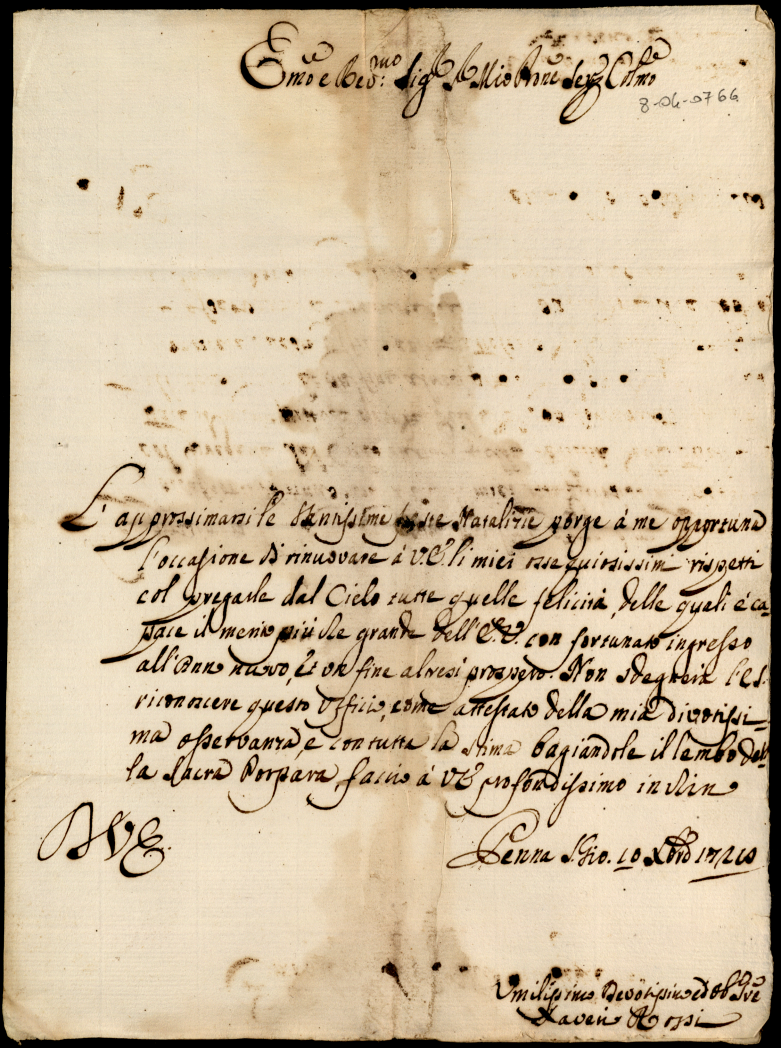 Em̃o e Red:mo Sig.r Sig.r Mio Prõne Col̃mo
8-04-0766
L'approssimarsi le Santissime feste Natalizie porge à me opportuna
l'occasione di rinuovare à V.E. li miei ossequiosissimi rispetti
col pregarle dal Cielo tutte quelle felicità, delle quali è ca-
pace il merito più che grande dell'E.V. con fortunato ingresso
all'Anno nuovo, et un fine altresi prospero. Non sdegnerà l'E.V.
riconoscere questo Officio, come attestato della mia divotissi-
ma osservanza, e con tutta la stima bagiandole il lembo del-
la Sacra Porpora, faccio à V.E. profondissimo inchino
D V E.
Penna S. Gio. 10 Xbre
Umilissimo Devotissimo ed Obl. Sre
Saverio Rossi